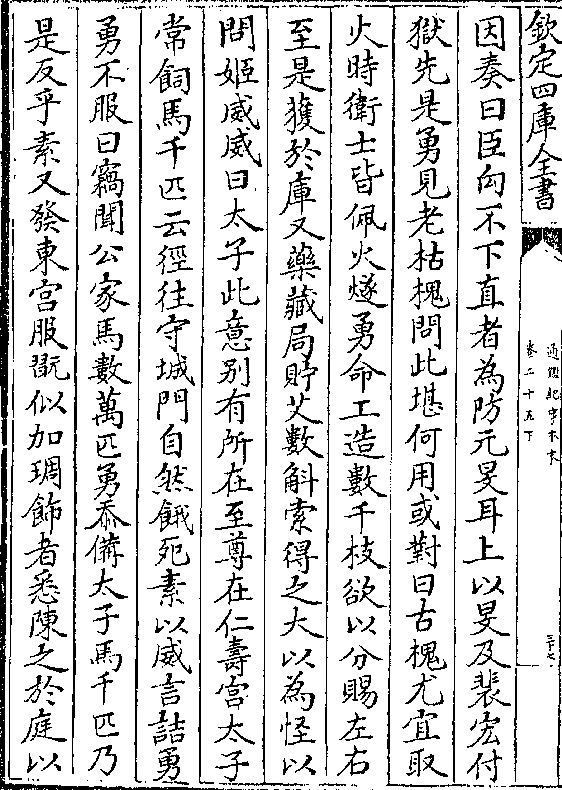 欽定四庫全書
通鑑紀事本末
卷二十五下
三十七
因奏曰臣向不下直者為防元旻耳上以旻及裴宏付
獄先是勇見老枯槐問此堪何用或對曰古槐尤宜取
火時衛士皆佩火燧勇命工造數千枝欲以分賜左右
至是獲於庫又藥藏局貯艾數斛索得之大以為怪以
問姬威威曰太子此意别有所在至尊在仁壽宫太子
常飼馬千匹云徑往守城門自然餓死素以威言詰勇
勇不服曰竊聞公家馬數萬匹勇忝備太子馬千匹乃
是反乎素又發東宫服翫似加琱飾者悉陳之於庭以